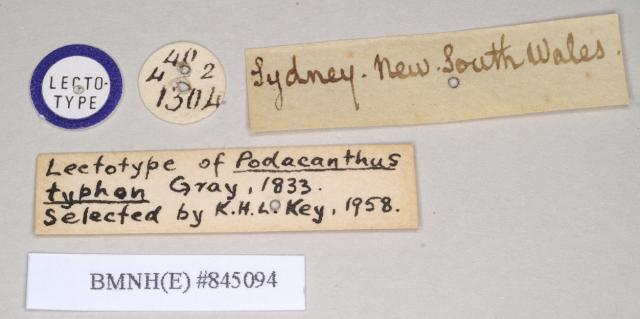 LECTO-
TYPE
40
4 2
1304
Sydney. New. South Wales.
Lectotype of Podacanthus
typhon Gray, 1833.
Selected by K.H.L. Key, 1958.
BMNH(E) #845094